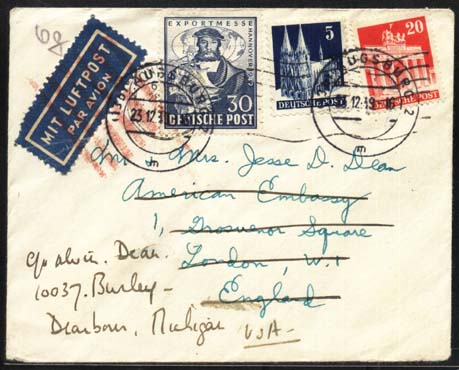 68
MIT LUFTPOST
PAR AVION
EXPORTMESSE
HANNOVER 1949
30
DEUTSCHE POST
5
DEUTSCHE POST
20
DEUTSCHE POST
AUGSBURG 2
23.12.
AUGSBURG 2
.12.49.
Mr & Mrs. Jesse D. Dean
American Embassy
1, Grosvenor Square
London, W.1
England
c/o Alvin. Dean.
10037. Burley-
Dearborn, Michigan
USA-